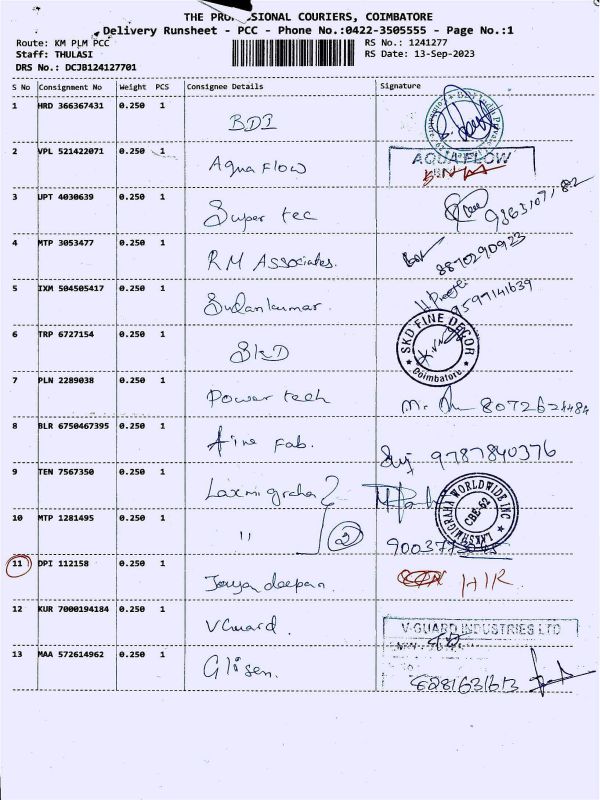 THE PROFESSIONAL COURIERS, COIMBATORE
Delivery Runsheet - PCC - Phone No.:0422-3505555 - Page No.:1
Route: KM PLM PCC RS No.: 1241277
Staff: THULASI RS Date: 13-Sep-2023
DRS No.: DCJB124127701
S No Consignment No Weight PCS Consignee Details Signature
1 HRD 366367431 0.250 1
BDI
2 VPL 521422071 0.250 1
Aqua Flow AQUA FLOW
3 UPT 4030639 0.250 1
Super tec
4 MTP 3053477 0.250 1
RM Associates. 8870290923
5 IXM 504505417 0.250 1
Sudankumar. 9597141639
6 TRP 6727154 0.250 1
SKD SKD FINE DECOR Coimbatore
7 PLN 2289038 0.250 1
Power tech
8 BLR 6750467395 0.250 1
fine Fab. 9787840376
9 TEN 7567350 0.250 1
Laxmi graha LAKSHMIGRAHA WORLDWIDE INC CBE-62
10 MTP 1281495 0.250 1
" 2
11 DPI 112158 0.250 1
12 KUR 7000194184 0.250 1
VGuard. V-GUARD INDUSTRIES LTD
13 MAA 572614962 0.250 1